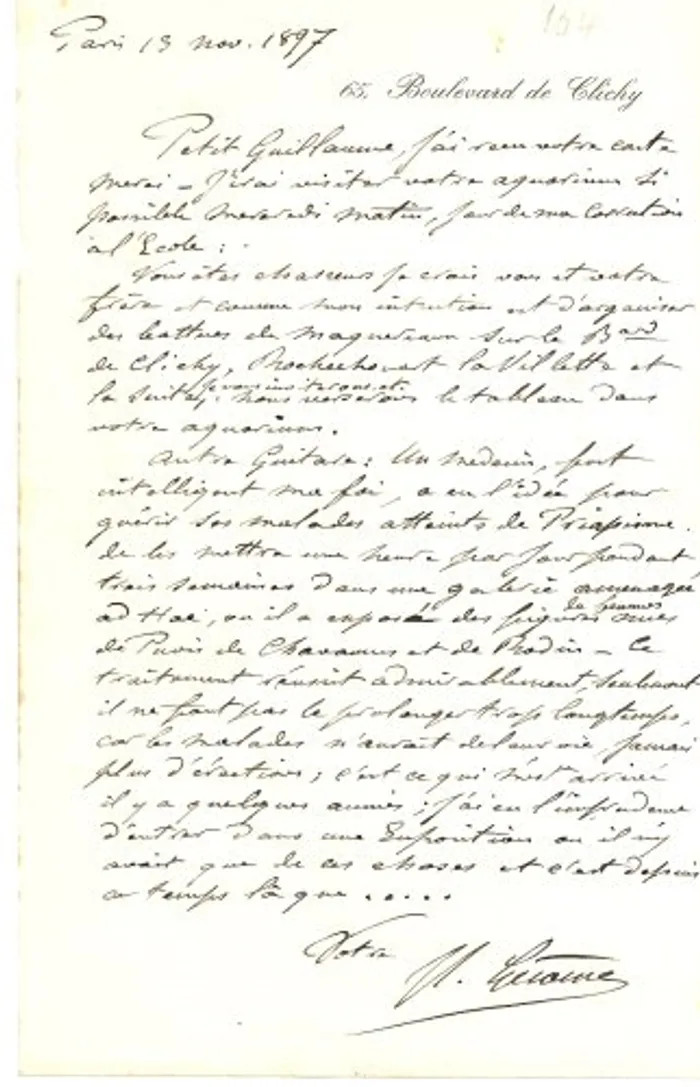 154
Paris 13 nov. 1897
65, Boulevard de Clichy
Petit Guillaume, j'ai reçu votre carte
merci – J'irai visiter votre aquarium si
possible mercredi matin, jour de ma correction
à l'Ecole :
Vous êtes chasseurs je crois vous et votre
frère et comme mon intention est d'organiser
des battues de maquereaux sur le Bard
de Clichy, Rochechouart la Villette et
la suite, je vous inviterais et
nous verserons le tableau dans
votre aquarium.
Autre Guitare : Un medecin, fort
intelligent ma foi, a eu l'idée pour
guérir ses malades atteints de Priapisme.
de les mettre une heure par jour pendant
trois semaines dans une galerie amenagée
ad Hoc, où il a exposé des figures de femmes nues
de Puvis de Chavannes et de Rodin – Ce
traitement réussit admirablement, seulement
il ne faut pas le prolonger trop longtemps,
car les malades n'aurait de leur vie, jamais
plus d'érections ; c'est ce qui m'est arrivé
il y a quelques années ; j'ai eu l'imprudence
d'entrer dans une Exposition où il n'y
avait que de ces choses et c'est depuis
ce temps là que .....
Votre
Jl. Gérome